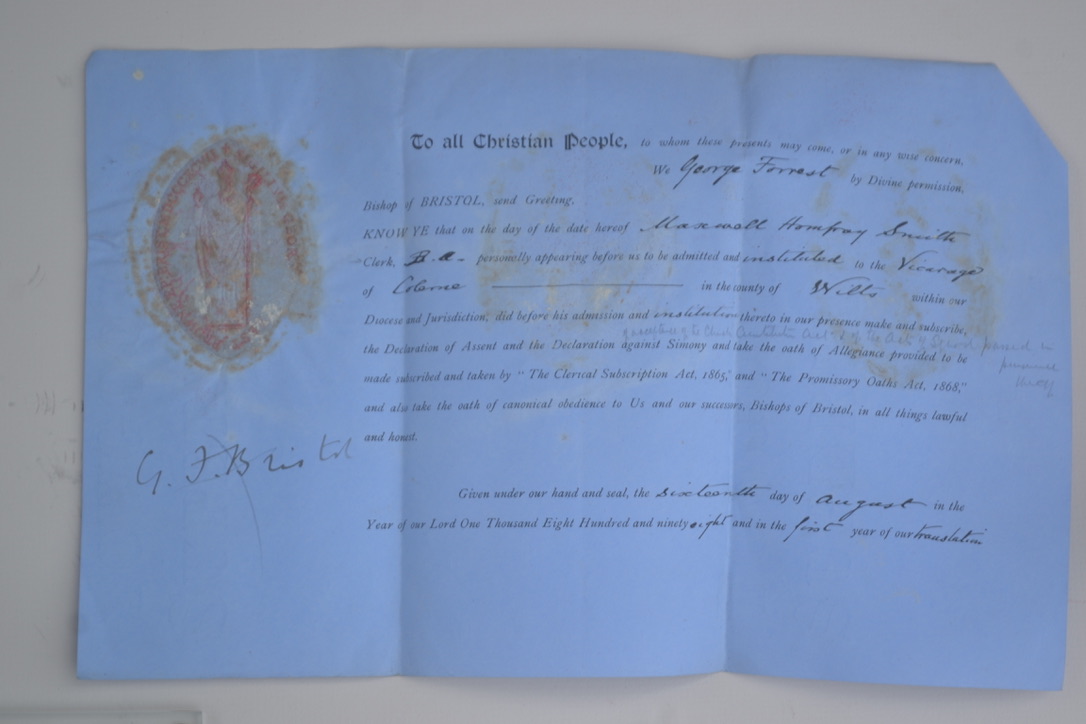 To all Christian People, to whom these presents may come, or in any wise concern,
We George Forrest by Divine permission,
Bishop of BRISTOL, send Greeting,
KNOW YE that on the day of the date hereof Maxwell Homfray Smith
Clerk, B.A. personally appearing before us to be admitted and instituted to the Vicarage
of Colerne in the county of Wilts within our
Diocese and Jurisdiction, did before his admission and institution thereto in our presence make and subscribe,
of the Act of passed in
the Declaration of Assent and the Declaration against Simony and take the oath of Allegiance provided to be
made subscribed and taken by "The Clerical Subscription Act, 1865," and "The Promissory Oaths Act, 1868,"
and also take the oath of canonical obedience to Us and our successors, Bishops of Bristol, in all things lawful
and honest.
G. F. Bristol
Given under our hand and seal, the sixteenth day of August in the
Year of our Lord One Thousand Eight Hundred and ninety eight and in the first year of our translation